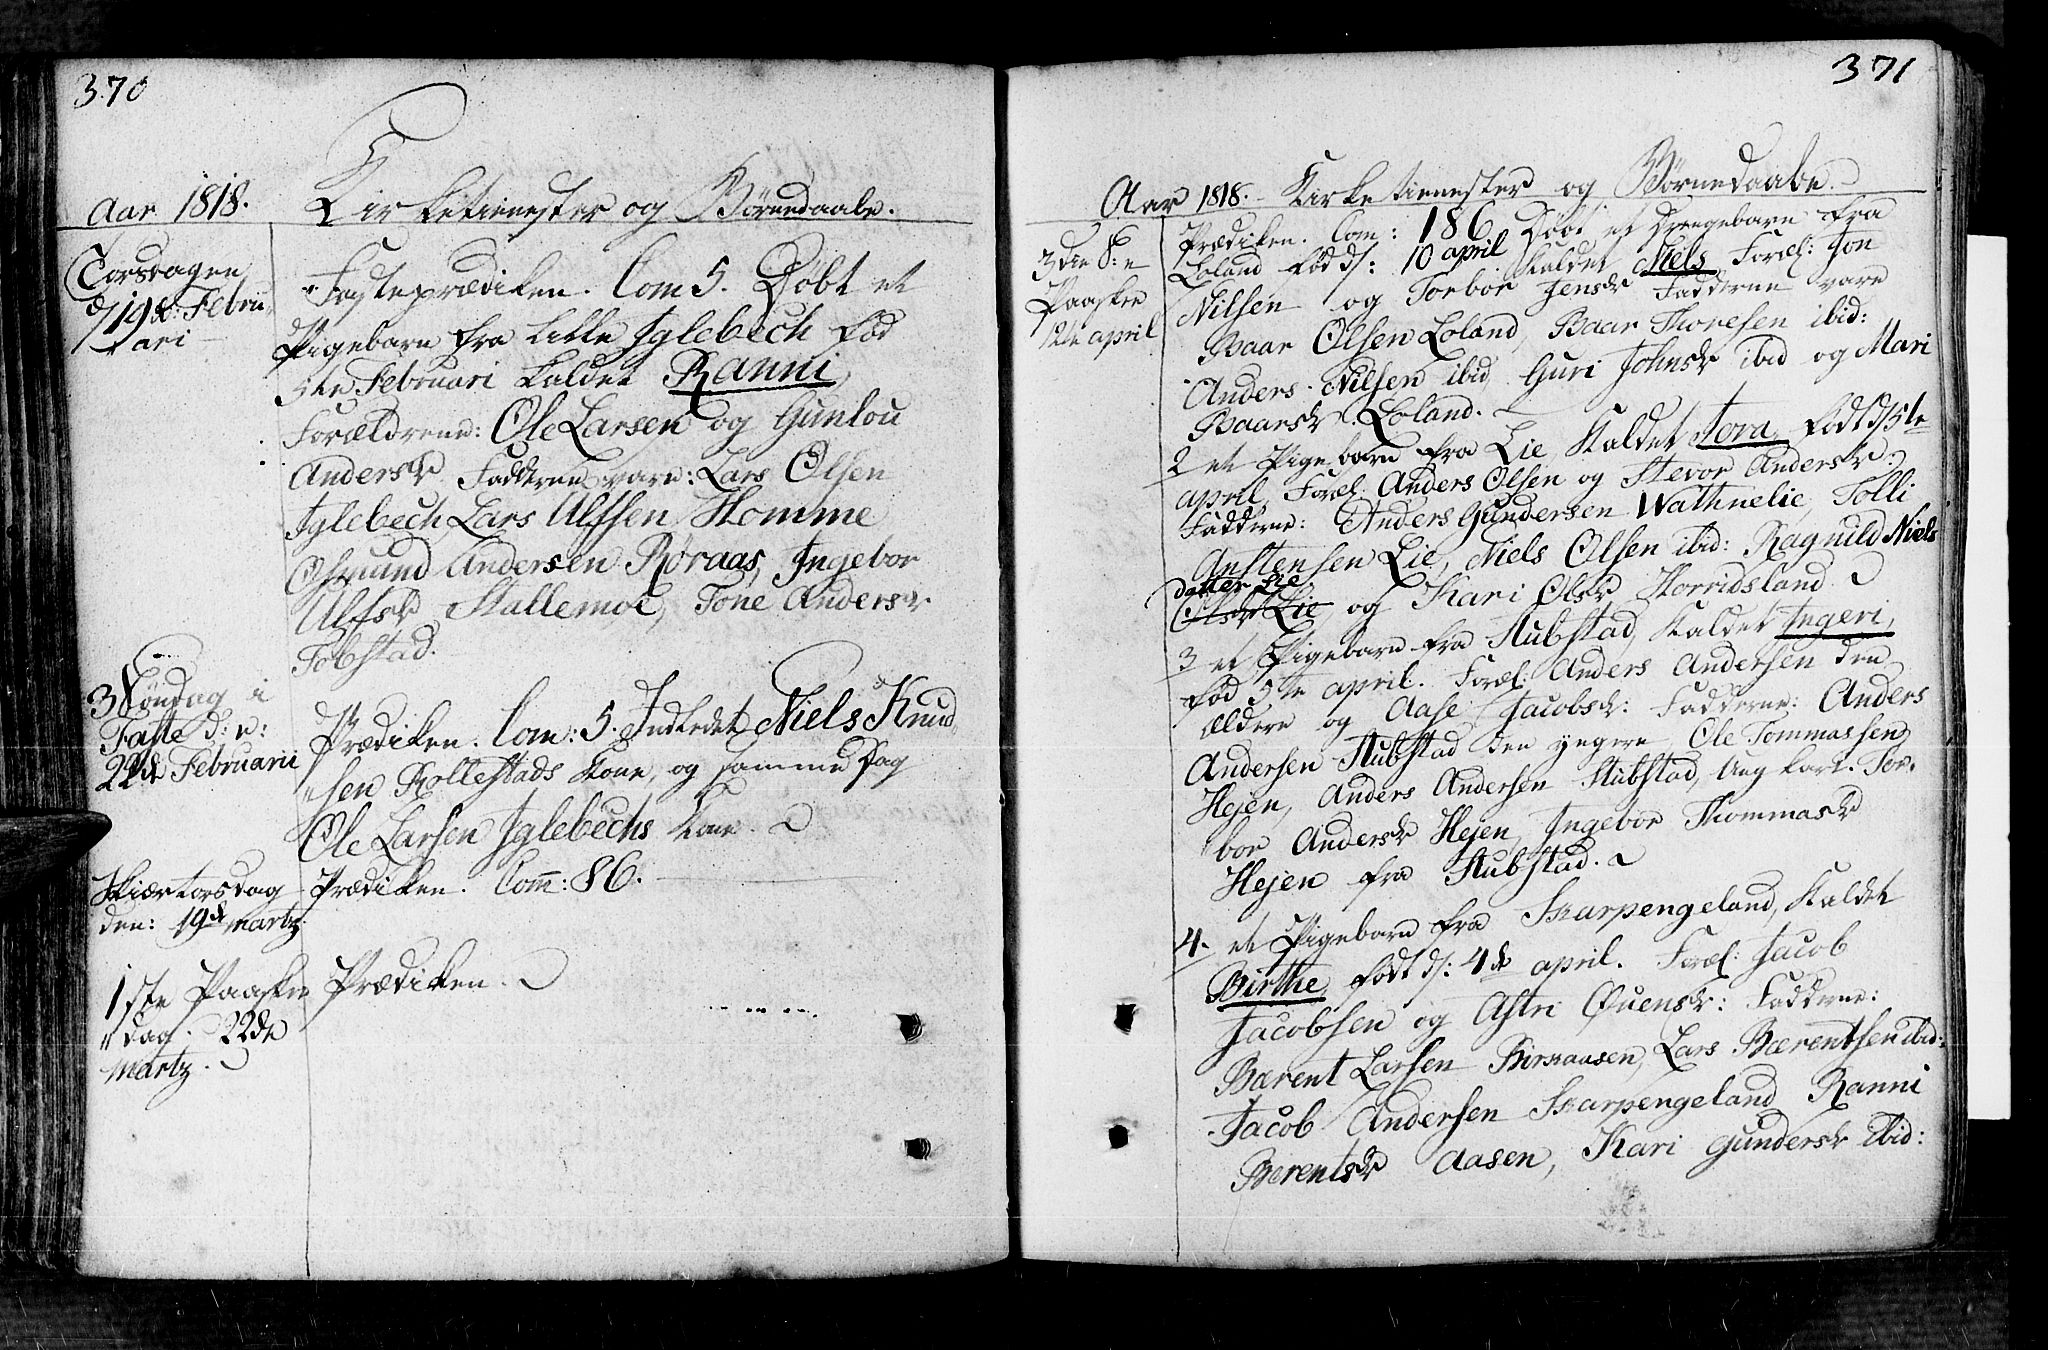 370
Aar 1818. Kirketienester og Börnedaabe.
Torsdagen
d/19de Febru-
ari
Fasteprædiken. Com 5. Döbt et
Pigebarn fra Lille Iglebech fød
5te Februari kaldet Ranni,
Forældrene: Ole Larsen og Gunlou
Andersdr Fadderne vare: Lars Olsen
Iglebech, Lars Ulfsen Homme
Osmund Andersen Røraas, Ingebor
Ulfsdr Stallemoe, Tone Andersdr
Tobstad.
3 Söndag i
Faste d: e:
22de Februarii
Prædiken. Com: 5. Indledet Niels Knud-
sen Rollestads Kone, og samme Dag
Ole Larsen Iglebechs Kone.
Skiærtorsdag
den: 19de martz.
Prædiken. Com: 86.
1ste Paaske
dag. 22de
martz.
Prædiken.
371
Aar 1818. Kirketienester og Börnedaabe.
3die S: e
Paaske
12te april
Prædiken. Com: 186 Döbt et Drengebarn fra
Loland fød d/: 10 april kaldet Niels Foræl: Jon
Nilsen og Torbor Jensdr Fadderne vare
Baar Olsen Loland, Baar Thoresen ibid:
Anders Nilsen ibid, Guri Johnsdr ibid og Mari
Baarsdr Loland.
2 et Pigebarn fra Lie Kaldet Tora, født d/5te
april, Foræl: Anders Olsen og Stevor Andersdr:
Fadderne: Anders Gundersen Wathnelie, Tolli
Anstensen Lie, Niels Olsen ibid: Ragnild Niels
datter Lie
Olsdr Lie og Kari Olsdr Horridsland
3 et Pigebarn fra Stubstad, Kaldet Ingeri,
fød 5te april. Foræl: Anders Andersen den
ældere og Aase Jacobsdr: Fadderne: Anders
Andersen Stubstad den yngere, Ole Tommassen
Hejen, Anders Andersen Stubstad, Ung karl. Tor-
bor Andersdr Hejen, Ingebor Thommasdr
Hejen fra Stubstad.
4. et Pigebarn fra Skarpengeland, Kaldet
Birthe, født d/: 4de april. Foræl: Jacob
Jacobsen og Astri Ouensdr: Fadderne:
Bærent Larsen Birkaasen, Lars Bærentsen ibid:
Jacob Andersen Skarpengeland Ranni
Berentsdr Aasen, Kari Gundersdr ibid: